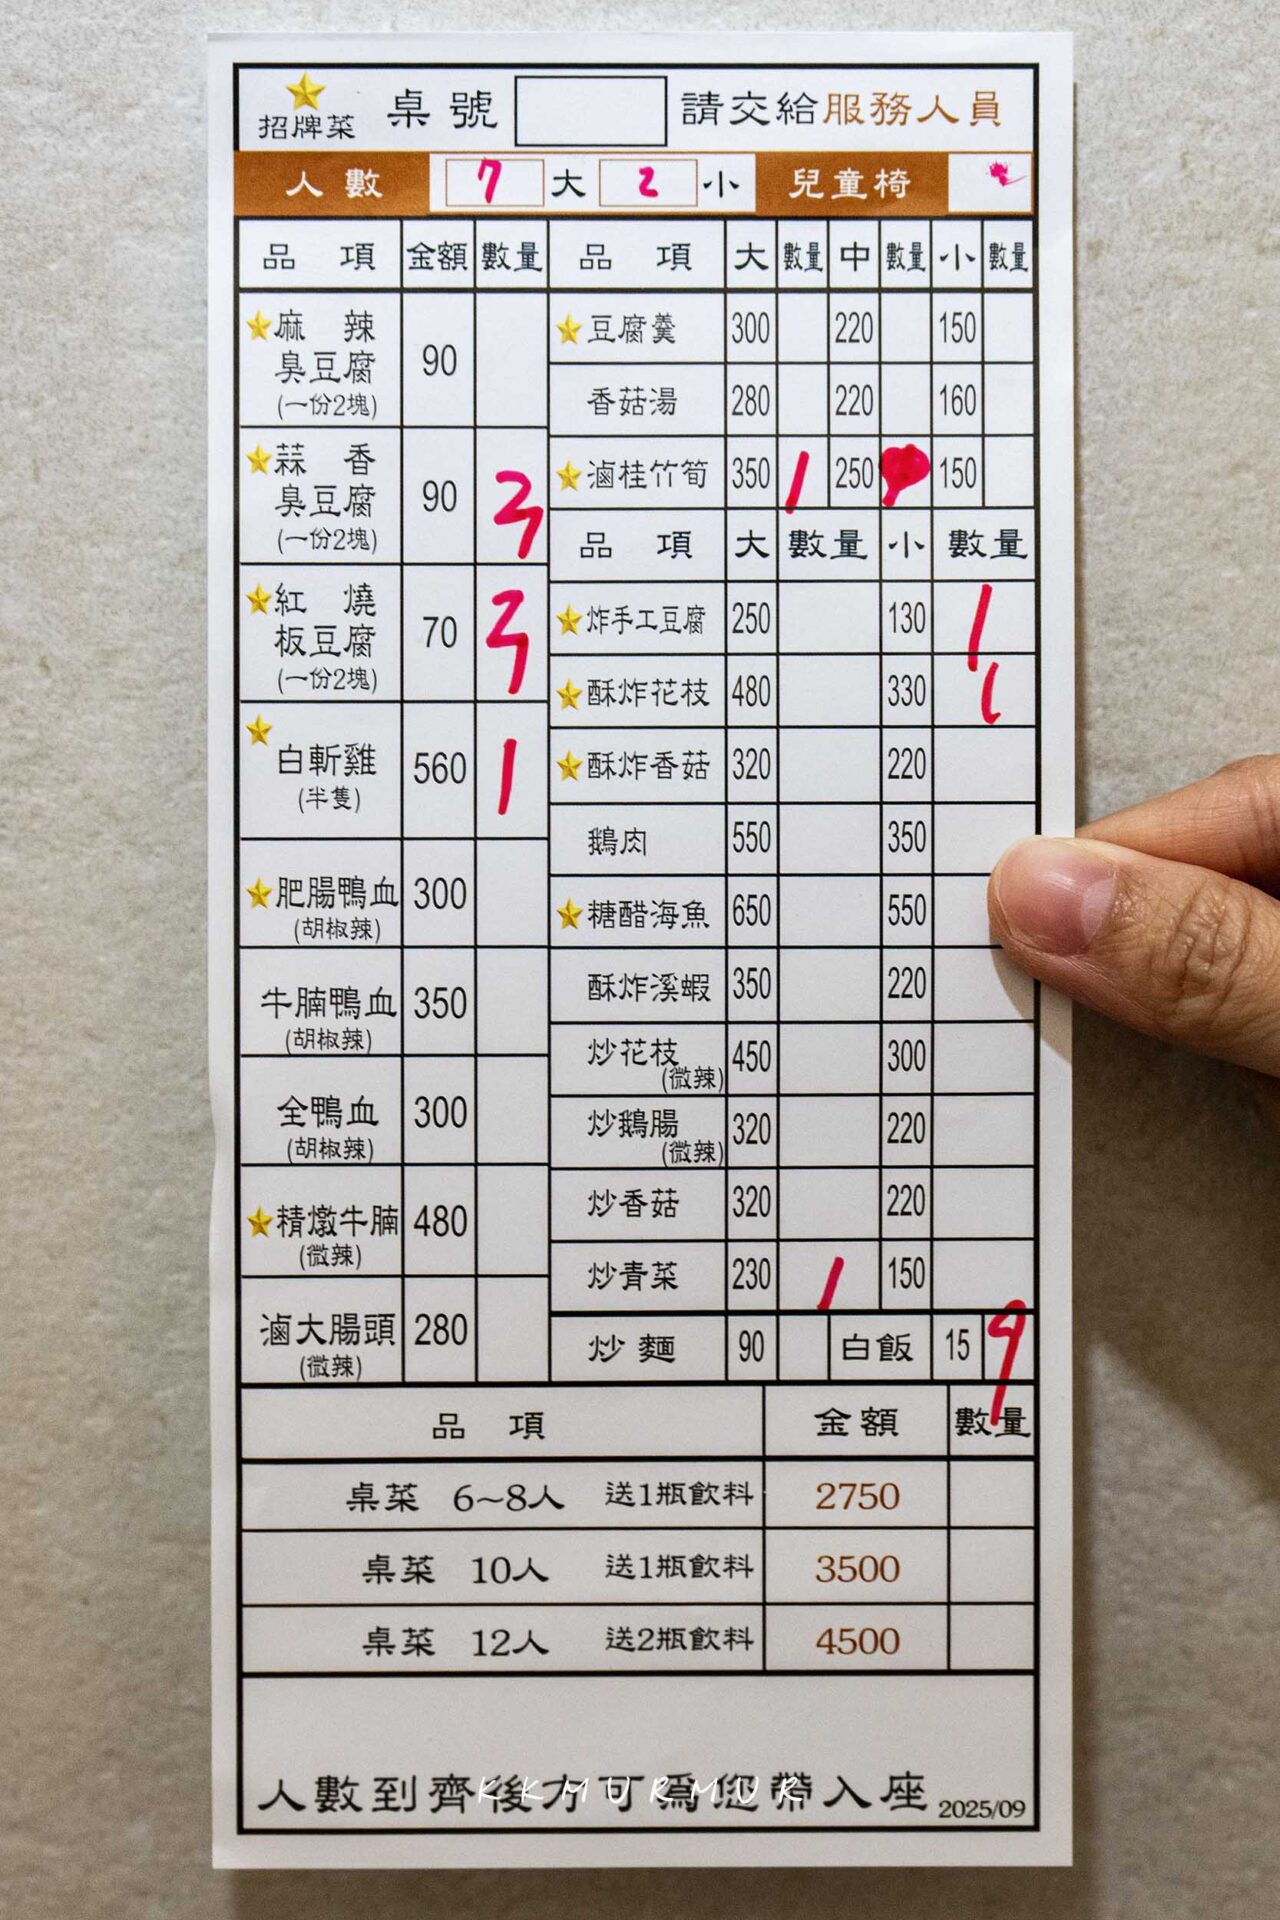 招牌菜 桌號 請交給服務人員
人數 7 大 2 小 兒童椅
品項 金額 數量
麻辣
臭豆腐 90
(一份2塊)
蒜香
臭豆腐 90 3
(一份2塊)
紅燒
板豆腐 70 3
(一份2塊)
白斬雞 560 1
(半隻)
肥腸鴨血 300
(胡椒辣)
牛腩鴨血 350
(胡椒辣)
全鴨血 300
(胡椒辣)
精燉牛腩 480
(微辣)
滷大腸頭 280
(微辣)
品項 大 數量 中 數量 小 數量
豆腐羹 300 220 150
香菇湯 280 220 160
滷桂竹筍 350 1 250 150
品項 大 數量 小 數量
炸手工豆腐 250 130 1
酥炸花枝 480 330 1
酥炸香菇 320 220
鵝肉 550 350
糖醋海魚 650 550
酥炸溪蝦 350 220
炒花枝 450 300
(微辣)
炒鵝腸 320 220
(微辣)
炒香菇 320 220
炒青菜 230 1 150
炒麵 90 白飯 15 9
品項 金額 數量
桌菜 6~8人 送1瓶飲料 2750
桌菜 10人 送1瓶飲料 3500
桌菜 12人 送2瓶飲料 4500
人數到齊後方可為您帶入座 2025/09
KKMURMUR